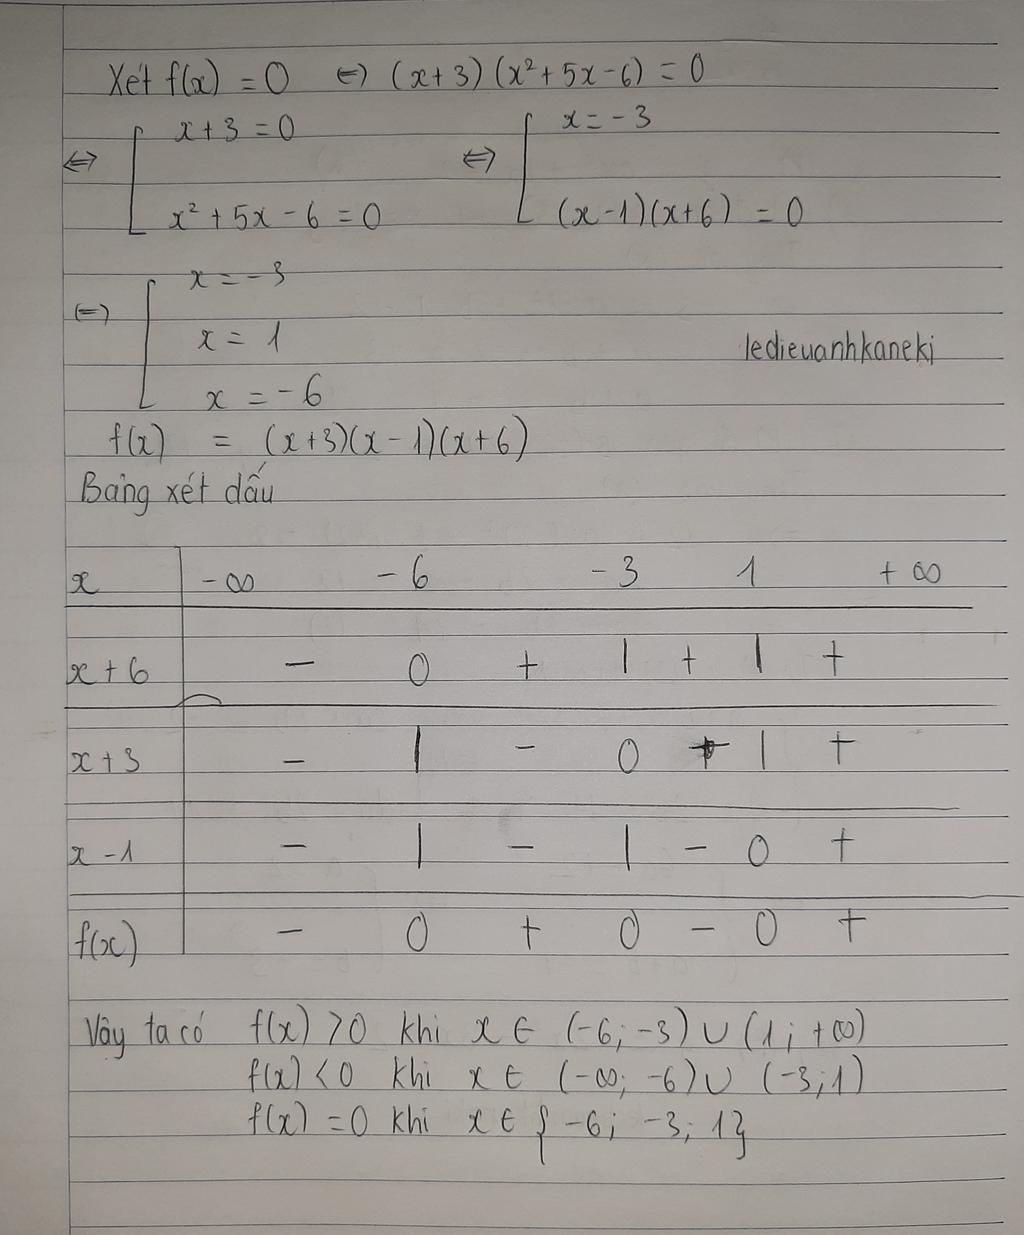 Xét f(x) = 0 ⇔ (x+3)(x²+5x-6) = 0
⇔ [ x+3 = 0 ⇔ [ x = -3
x²+5x-6 = 0 (x-1)(x+6) = 0
⇔ [ x = -3
x = 1
ledieuanhkaneki
x = -6
f(x) = (x+3)(x-1)(x+6)
Bảng xét dấu
x -∞ -6 -3 1 +∞
x+6 - 0 + | + | +
x+3 - | - 0 + | +
x-1 - | - | - 0 +
f(x) - 0 + 0 - 0 +
Vây ta có f(x) >0 khi x ∈ (-6; -3) ∪ (1; +∞)
f(x) <0 khi x ∈ (-∞; -6) ∪ (-3; 1)
f(x) = 0 khi x ∈ { -6; -3; 1}